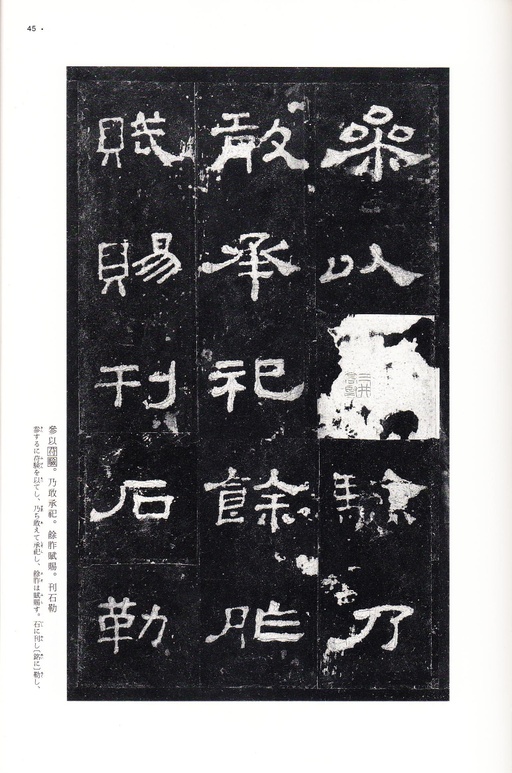 45
參以
乃
敢承祀餘胙
賦賜刊石勒
參以。乃敢承祀。餘胙賦賜。刊石勒
参するにを以てし、乃ち敢えて承祀し、餘胙は賦賜す。石に刊し〔銘に〕勒し、